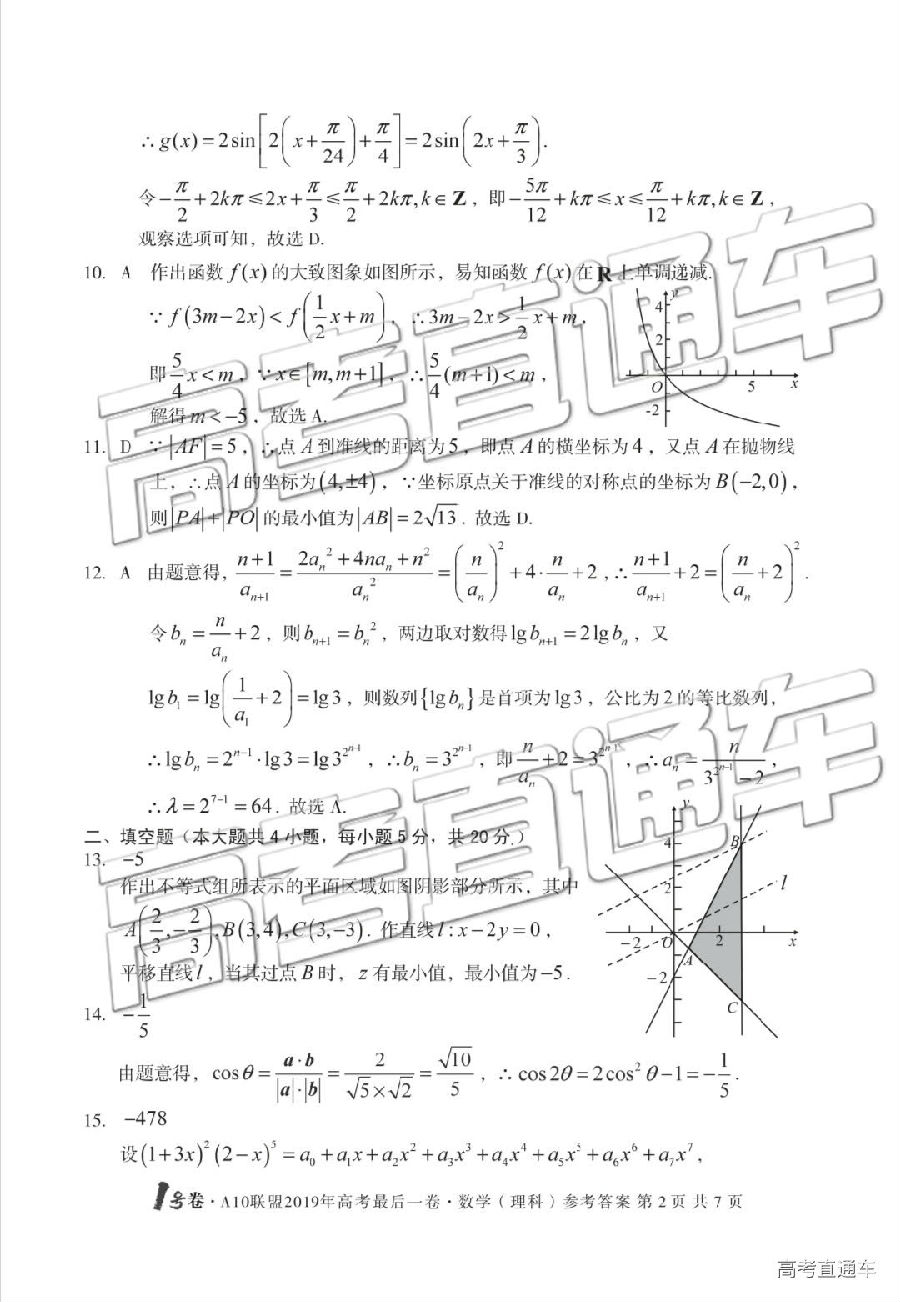 ∴ g(x) = 2sin[2(x + π/24) + π/4] = 2sin(2x + π/3).
令 −π/2 + 2kπ ≤ 2x + π/3 ≤ π/2 + 2kπ, k ∈ Z，即 −5π/12 + kπ ≤ x ≤ π/12 + kπ, k ∈ Z，
观察选项可知，故选 D.
10. A 作出函数 f(x) 的大致图象如图所示，易知函数 f(x) 在 R 上单调递减.
∵ f(3m−2x) < f(1/2 x + m)，∴ 3m − 2x > 1/2 x + m，
即 5/4 x < m，∵ x ∈ [m, m+1]，∴ 5/4 (m+1) < m，
解得 m < −5，故选 A.
y 4 2 O 5 x -2
11. D ∵ |AF| = 5，∴ 点 A 到准线的距离为 5，即点 A 的横坐标为 4，又点 A 在抛物线
上，∴ 点 A 的坐标为 (4, ±4)，∵ 坐标原点关于准线的对称点的坐标为 B(−2, 0)，
则 |PA| + |PO| 的最小值为 |AB| = 2√13. 故选 D.
12. A 由题意得，(n+1)/a_{n+1} = (2a_n² + 4na_n + n²)/a_n² = (n/a_n)² + 4·n/a_n + 2，∴ (n+1)/a_{n+1} + 2 = (n/a_n + 2)².
令 b_n = n/a_n + 2，则 b_{n+1} = b_n²，两边取对数得 lg b_{n+1} = 2lg b_n，又
lg b_1 = lg(1/a_1 + 2) = lg3，则数列 {lg b_n} 是首项为 lg3，公比为 2 的等比数列，
∴ lg b_n = 2^{n−1}·lg3 = lg3^{2^{n−1}}，∴ b_n = 3^{2^{n−1}}，即 n/a_n + 2 = 3^{2^{n−1}}，∴ a_n = n/(3^{2^{n−1}} − 2)，
∴ λ = 2^{7−1} = 64. 故选 A.
二、填空题（本大题共 4 小题，每小题 5 分，共 20 分.）
13. −5
作出不等式组所表示的平面区域如图阴影部分所示，其中
A(2/3, −2/3), B(3, 4), C(3, −3). 作直线 l : x − 2y = 0，
平移直线 l，当其过点 B 时，z 有最小值，最小值为 −5.
y 4 B 2 l −2 O 2 x A −2 C
14. −1/5
由题意得，cosθ = a·b/(|a|·|b|) = 2/(√5×√2) = √10/5，∴ cos2θ = 2cos²θ − 1 = −1/5.
15. −478
设 (1+3x)²(2−x)⁵ = a₀ + a₁x + a₂x² + a₃x³ + a₄x⁴ + a₅x⁵ + a₆x⁶ + a₇x⁷，
1号卷·A10联盟2019年高考最后一卷·数学（理科）参考答案 第 2 页 共 7 页
高考直通车
高考直通车
高考直通车